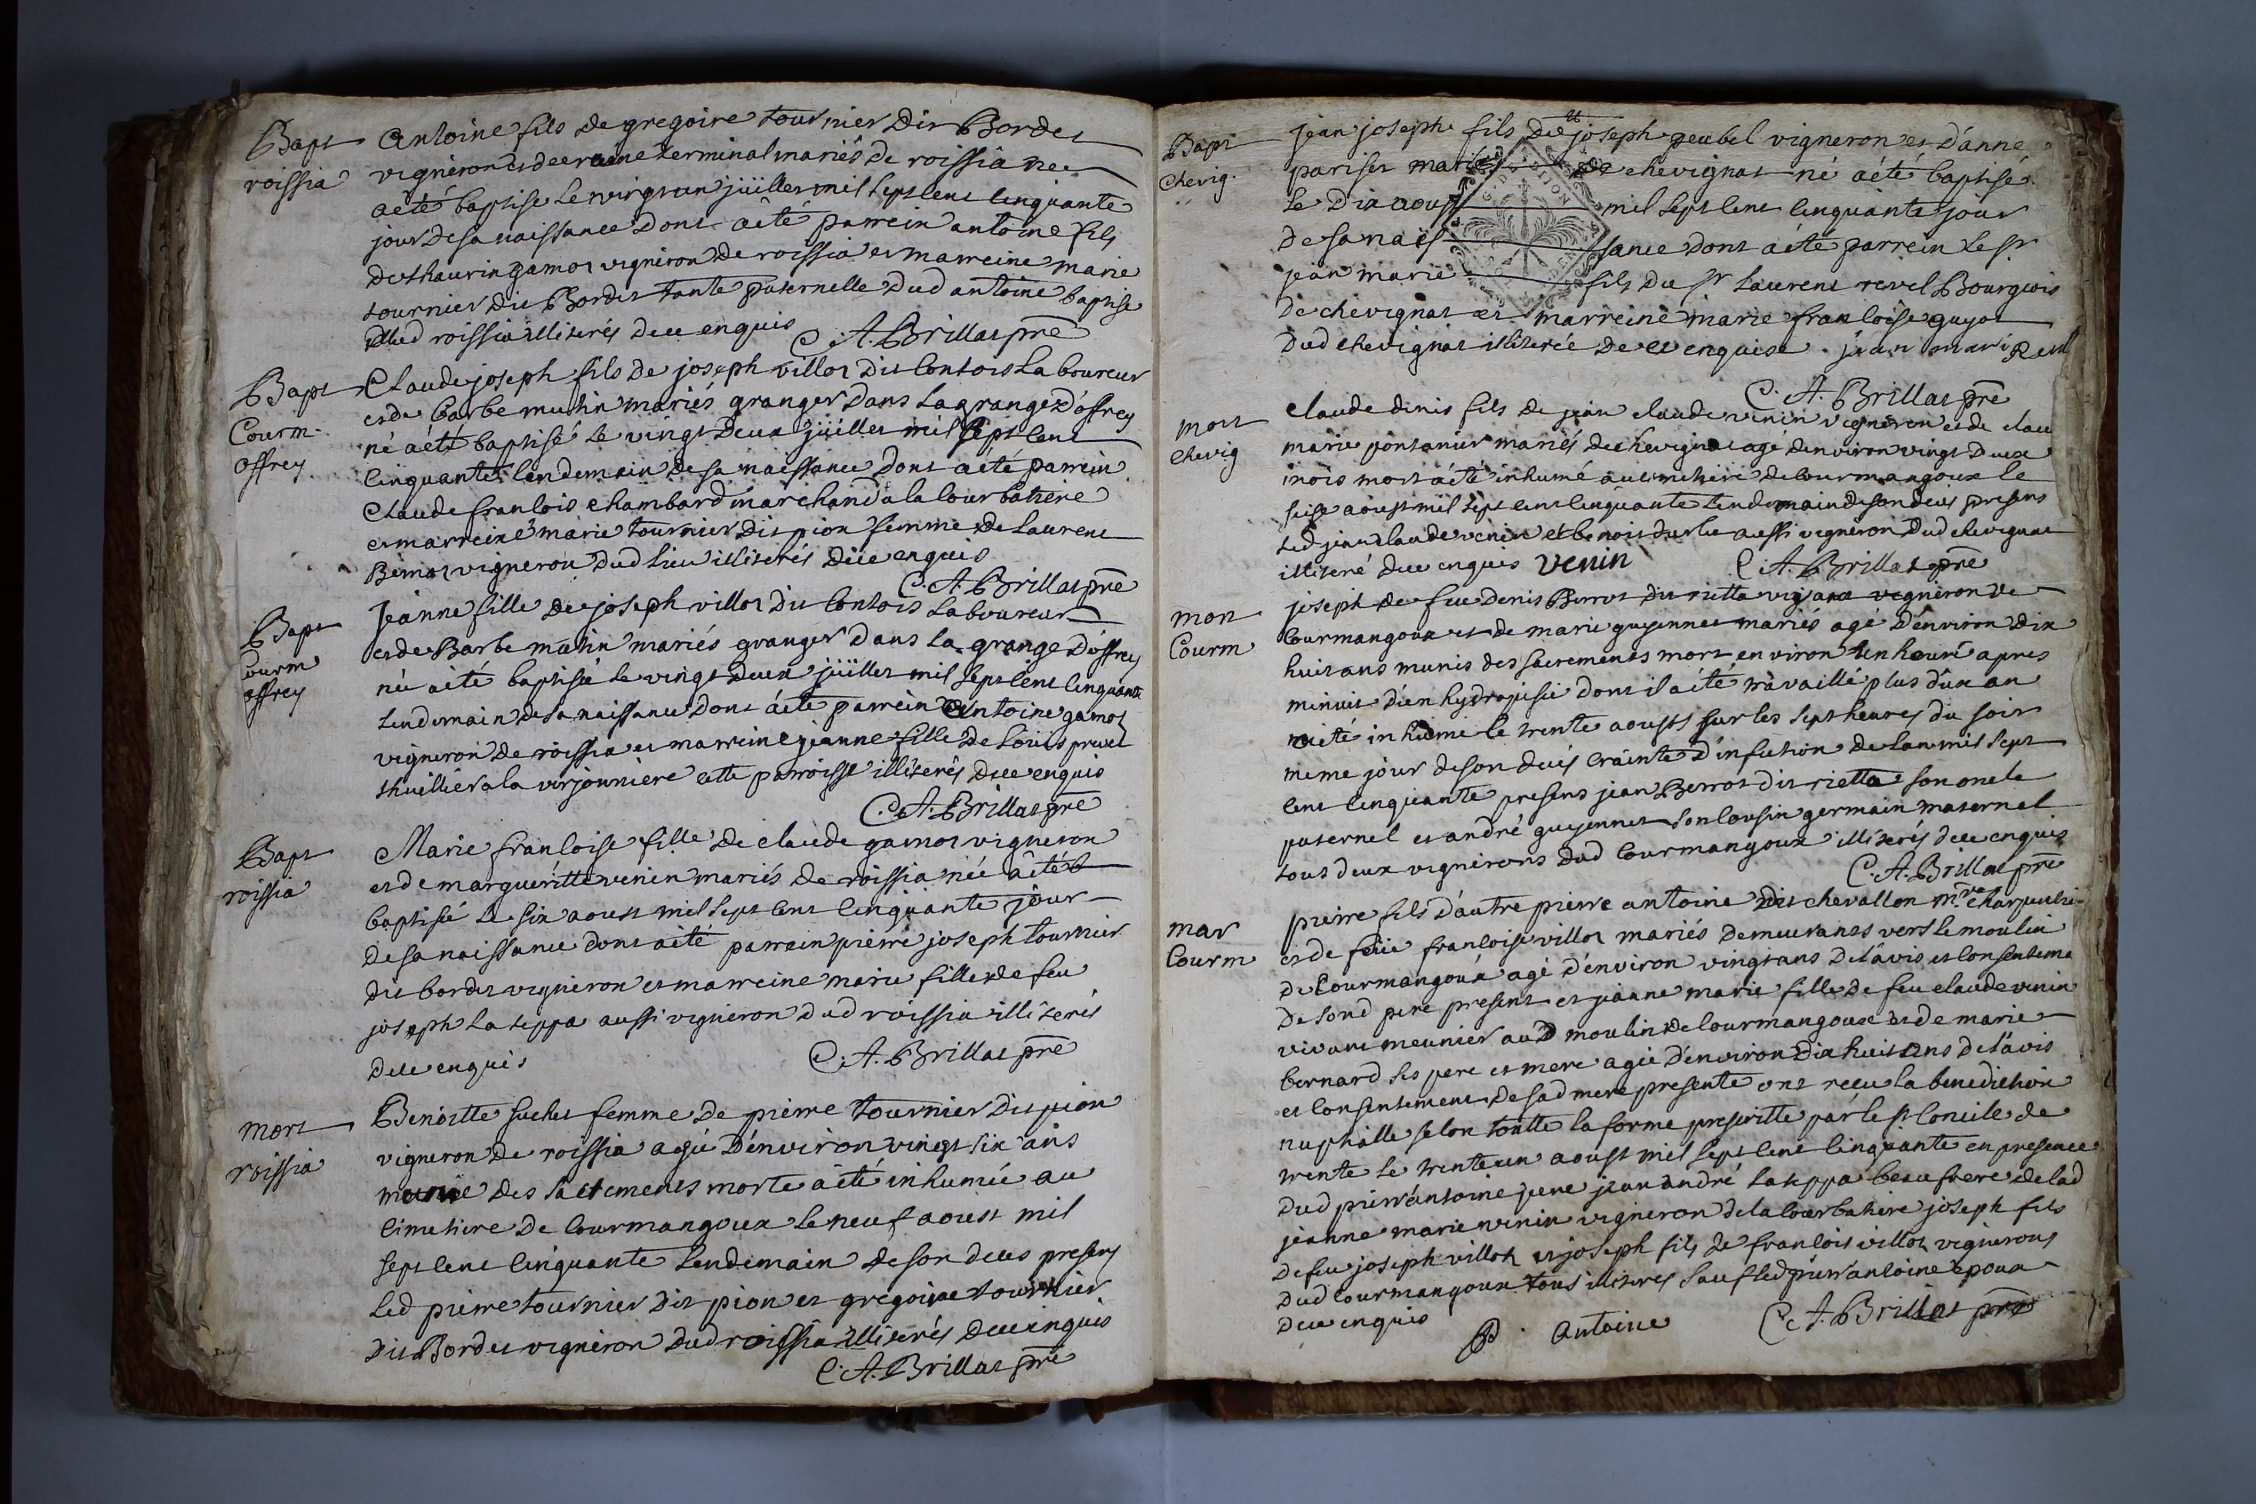 Bapt
roissia
Antoine fils de gregoire tournier dit Bordet
vigneron et de reine terminal mariés de roissia né
a été baptisé le vingt un juillet mil sept cent cinquante
jour de sa naissance dont a été parrein antoine fils
de thaurin gamot vigneron de roissia et marreine marie
tournier dit Bordet tante paternelle dud antoine baptisé
dud roissia illiterés de ce enquis C. A. Brillat pre
Bapt
Courm.
offrey
Claude joseph fils de joseph villot dit Contois laboureur
et de barbe mutin mariés granger dans la grange d'offrey
né a été baptisé le vingt deux juillet mil sept cent
cinquante lendemain de sa naissance dont a été parrein
Claude francois chambard marchand a la courbatiere
et marreine marie tournier dit pion femme de Laurent
vigneron dud lieu illiterés de ce enquis
C. A. Brillat pre
Bapt
Courm
offrey
Jeanne fille de joseph villot dit Contois laboureur
et de Barbe mutin mariés granger dans la grange d'offrey
née a été baptisée le vingt deux juillet mil sept cent cinquante
lendemain de sa naissance dont a été parrein antoine gamot
vigneron de roissia et marreine jeanne fille de Louis
thuillier a la virjonniere cette parroisse illiterés de ce enquis
C. A. Brillat pre
Bapt
roissia
Marie francoise fille de claude gamot vigneron
et de margueritte venin mariés de roissia née a été
baptisée le six aoust mil sept cent cinquante jour
de sa naissance dont a été parrein pierre joseph tournier
dit bordet vigneron et marreine marie fille de feu
joseph la teppa aussi vigneron dud roissia illiterés
de ce enquis C. A. Brillat pre
mort
roissia
Benoitte suchet femme de pierre tournier dit pion
vigneron de roissia agée d'environ vingt six ans
munie des sacrements morte a été inhumée au
cimetiere de Courmangoux le neuf aoust mil
sept cent cinquante lendemain de son deces presens
led pierre tournier dit pion et gregoire tournier
dit Bordet vigneron dud roissia illiterés de ce enquis
C. A. Brillat pre
Bapt
Chevig.
Jean joseph fils de joseph peubel vigneron et d'anne
pariset mariés de chevignat né a été baptisé
le dix aoust mil sept cent cinquante jour
de sa naissance dont a été parrein le sr
jean marie fils du sr Laurent revel Bourgeois
de chevignat et marreine marie francoise guyot
dud chevignat illiterée de ce enquise . jean mari Revel
C. A. Brillat pre
mort
chevig
claude denis fils de jean claude venin vigneron et de clau
marie pontanier mariés de chevignat agé d'environ vingt deux
mois mort a été inhumé au cimetiere de courmangoux le
seize aoust mil sept cent cinquante lendemain de son deces presens
led jean claude venin et benoit aussi vigneron dud chevignat
illiteré de ce enquis venin C. A. Brillat pre
mort
Courm
joseph de feu denis Berrot dit rietta vigneron de
Courmangoux et de marie guyennet mariés agé d'environ dix
huit ans munis des sacrements mort environ un heure apres
minuit d'en hydropisie dont il a été travaillé plus d'un an
a été inhumé le trente aoust sur les sept heures du soir
meme jour de son deces crainte d'infection de l'an mil sept
cent cinquante presens jean Berrot dit rietta son oncle
paternel et andré guyennet son cousin germain maternel
tous deux vignerons dud Courmangoux illiterés de ce enquis
C. A. Brillat pre
mar
Courm
pierre fils d'autre pierre antoine dit chevallon mtre charpentier
et de feüe francoise villot mariés demeurants vers le moulin
de Courmangoux agé d'environ vingt ans de l'avis et consenteme
de sond pere present et jeanne marie fille de feu claude venin
vivant meunier aud moulin de Courmangoux et de marie
bernard ses pere et mere agée d'environ dix huit ans de l'avis
et consentement de sad mere presente ont receu la benediction
nuptialle selon toutte la forme prescritte par le st Concile de
trente le trente un aoust mil sept cent cinquante en presence
dud pierre antoine pere jean andré la teppa beau frere de lad
jeanne marie venin vigneron de la Courbatiere joseph fils
de feu joseph villot et joseph fils de francois villot vignerons
dud Courmangoux tous illiteres sauf led pierre antoine epoux
de ce enquis P. antoine C. A. Brillat pre